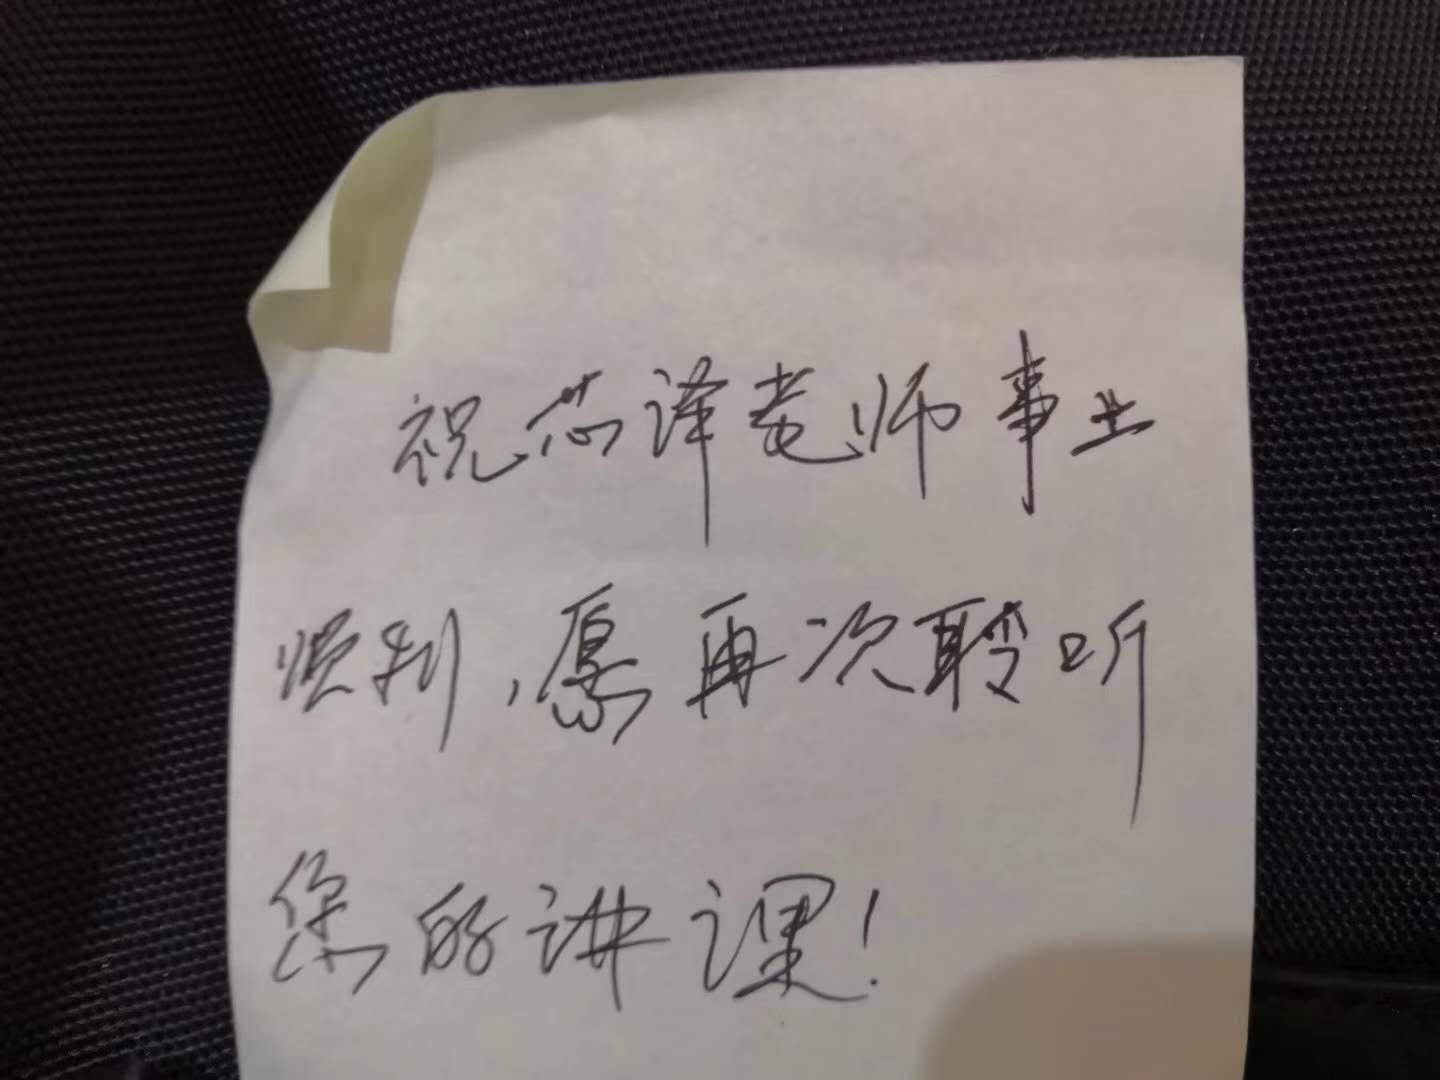 祝芯译老师事业
顺利，愿再次聆听
您的讲课！